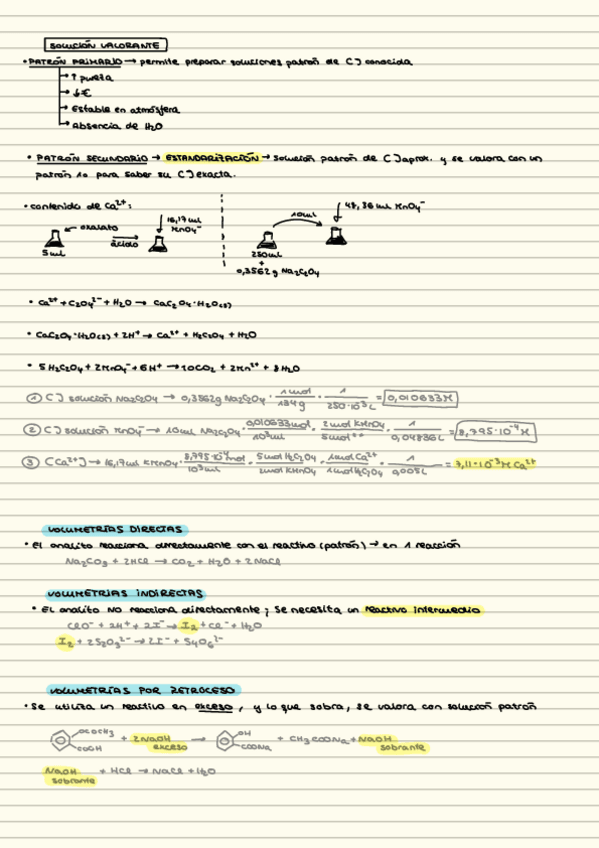 SOLUCIÓN VALORANTE
• PATRÓN PRIMARIO → permite preparar soluciones patrón de C] conocida
→ ↑ pureza
→ ↓€
→ Estable en atmósfera
→ Absencia de H2O
• PATRÓN SECUNDARIO → ESTANDARIZACIÓN → solución patrón de C] aprox. y se valora con un
patrón 1º para saber su C] exacta.
• contenido de Ca²⁺:
oxalato
5ml
ácido
16,17ml KMnO4⁻
10ml
48,36 ml KMnO4⁻
250ml
+
0,3562g Na2C2O4
• Ca²⁺ + C2O4²⁻ + H2O → CaC2O4·H2O(s)
• CaC2O4·H2O(s) + 2H⁺ → Ca²⁺ + H2C2O4 + H2O
• 5H2C2O4 + 2MnO4⁻ + 6H⁺ → 10CO2 + 2Mn²⁺ + 8H2O
① C] solución Na2C2O4 → 0,3562g Na2C2O4 · 1mol/134g · 1/250·10⁻³L = 0,010633M
② C] solución MnO4⁻ → 10ml Na2C2O4 · 0,010633mol/10³ml · 2mol KMnO4/5mol · 1/0,04836L = 8,795·10⁻⁴M
③ [Ca²⁺] → 16,17ml KMnO4 · 8,795·10⁻⁴mol/10³ml · 5mol H2C2O4/2mol KMnO4 · 1mol Ca²⁺/1mol H2C2O4 · 1/0,005L = 7,11·10⁻³M Ca²⁺
VOLUMETRÍAS DIRECTAS
• El analito reacciona directamente con el reactivo (patrón) → en 1 reacción
Na2CO3 + 2HCl → CO2 + H2O + 2NaCl
VOLUMETRIAS INDIRECTAS
• El analito NO reacciona directamente; se necesita un reactivo intermedio
ClO⁻ + 2H⁺ + 2I⁻ → I2 + Cl⁻ + H2O
I2 + 2S2O3²⁻ → 2I⁻ + S4O6²⁻
VOLUMETRÍAS POR RETROCESO
• Se utiliza un reactivo en exceso, y lo que sobra, se valora con solución patrón
OCOCH3
COOH
+ 2NaOH
exceso
→
OH
COONa
+ CH3COONa + NaOH
sobrante
NaOH + HCl → NaCl + H2O
sobrante